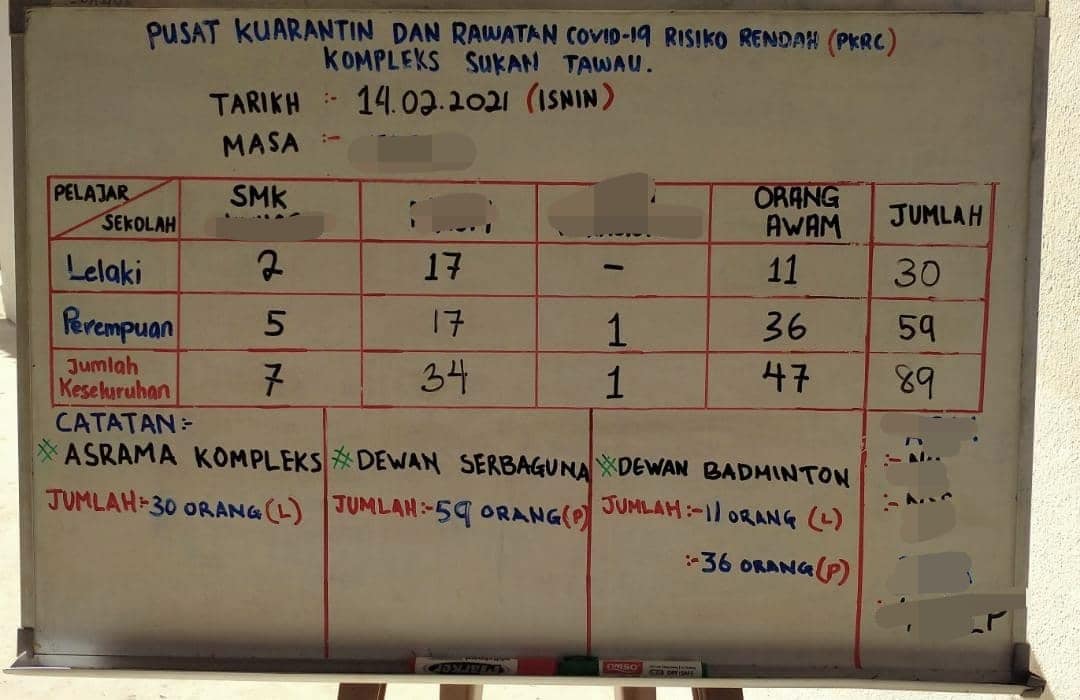 PUSAT KUARANTIN DAN RAWATAN COVID-19 RISIKO RENDAH (PKRC)
KOMPLEKS SUKAN TAWAU.
TARIKH :- 14.02.2021 (ISNIN)
MASA :-
PELAJAR SEKOLAH SMK ORANG AWAM JUMLAH
Lelaki 2 17 - 11 30
Perempuan 5 17 1 36 59
Jumlah Keseluruhan 7 34 1 47 89
CATATAN:-
※ ASRAMA KOMPLEKS
JUMLAH:-30 ORANG (L)
※ DEWAN SERBAGUNA
JUMLAH:-59 ORANG(P)
※ DEWAN BADMINTON
JUMLAH:-11 ORANG (L)
:-36 ORANG(P)